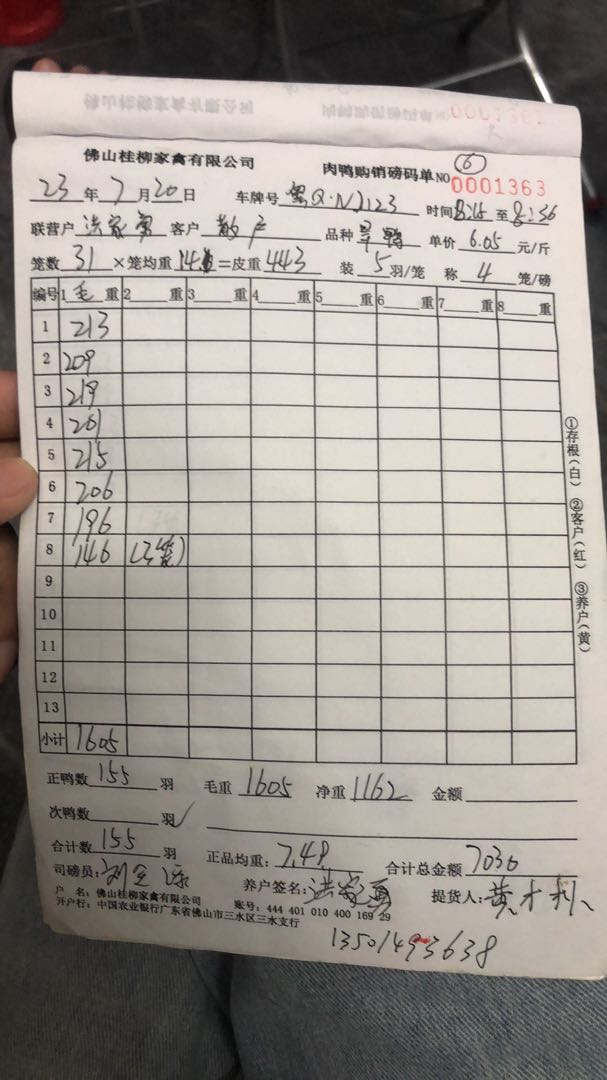 佛山桂柳家禽有限公司 肉鸭购销磅码单 NO 0001363
⑥
23 年 7 月 20 日 车牌号 粤Q·N1123 时间 8:15 至 8:36
联营户 洪家勇 客户 散户 品种 旱鸭 单价 6.05 元/斤
笼数 31 ×笼均重 14. =皮重 443 装 5 羽/笼 称 4 笼/磅
编号 1 毛 重 2 重 3 重 4 重 5 重 6 重 7 重 8 重
1 213
2 209
3 219
4 201
5 215
6 206
7 196
8 146 (3笼)
9
10
11
12
13
小计 1605
①存根(白) ②客户(红) ③养户(黄)
正鸭数 155 羽 毛重 1605 净重 1162 金额
次鸭数 羽
合计数 155 羽 正品均重: 7.49 合计总金额 7030
司磅员: 刘 养户签名: 洪家勇 提货人: 黄才利
户 名: 佛山桂柳家禽有限公司 账号: 444 401 010 400 169 29
开户行: 中国农业银行广东省佛山市三水区三水支行
13501493638